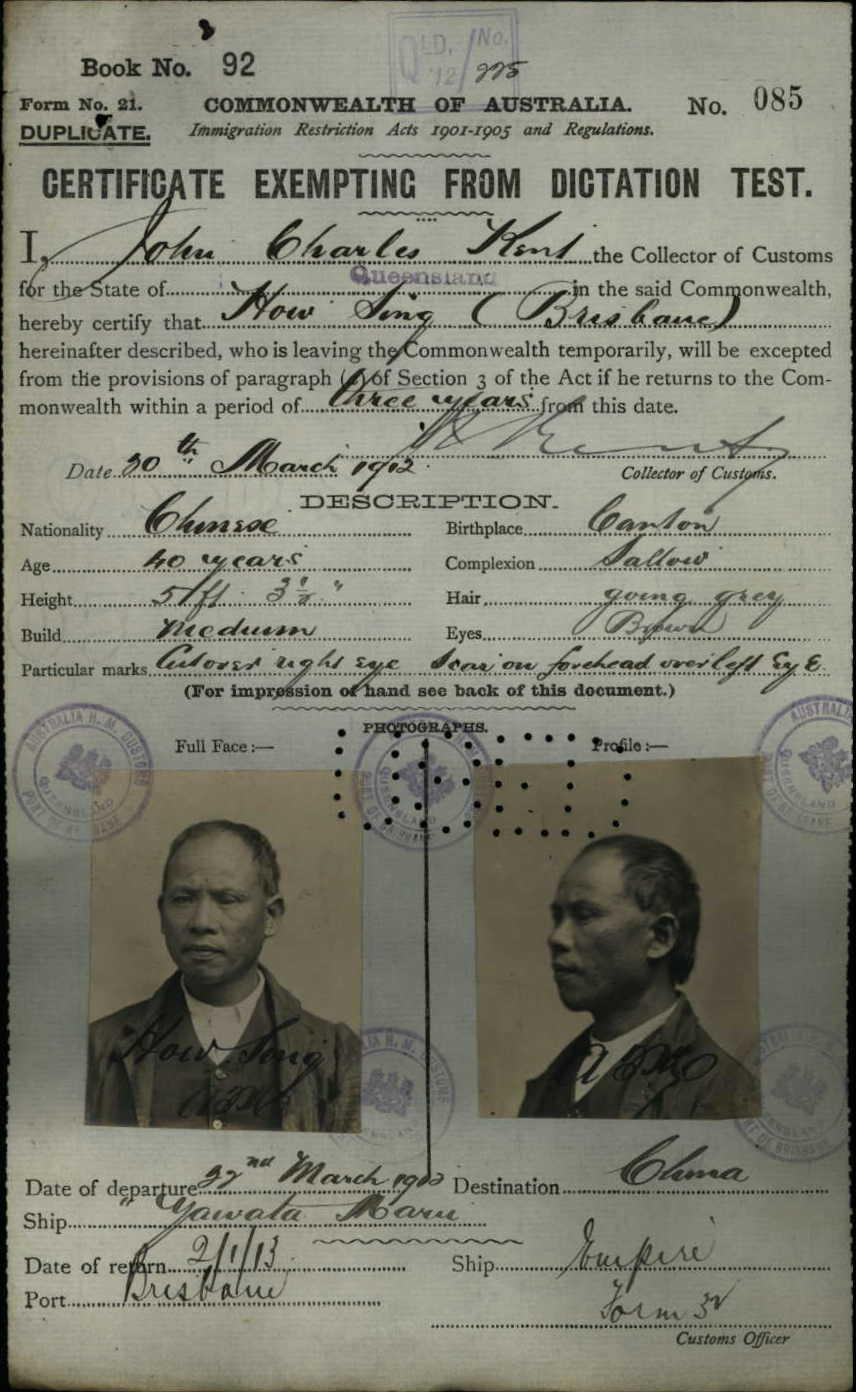 QLD. No.
'12/ 225
Book No. 92
Form No. 21. COMMONWEALTH OF AUSTRALIA. No. 085
DUPLICATE. Immigration Restriction Acts 1901-1905 and Regulations.
CERTIFICATE EXEMPTING FROM DICTATION TEST.
I, John Charles Kent the Collector of Customs
for the State of Queensland in the said Commonwealth,
hereby certify that How Sing (Brisbane)
hereinafter described, who is leaving the Commonwealth temporarily, will be excepted
from the provisions of paragraph (a) of Section 3 of the Act if he returns to the Com-
monwealth within a period of three years from this date.
Date 20th March 1912. Collector of Customs.
DESCRIPTION.
Nationality Chinese Birthplace Canton
Age 40 years Complexion Sallow
Height 5 ft 3½" Hair going grey
Build Medium Eyes Brown
Particular marks Cut over right eye Scar on forehead over left Eye
(For impression of hand see back of this document.)
PHOTOGRAPHS.
Full Face :— Profile :—
AUSTRALIA H. M. CUSTOMS
QUEENSLAND
PORT OF BRISBANE
How Sing
Date of departure 22nd March 1912 Destination China
Ship "Yawata Maru
Date of return 2/1/13 Ship Empire
Port Brisbane Form 32
Customs Officer